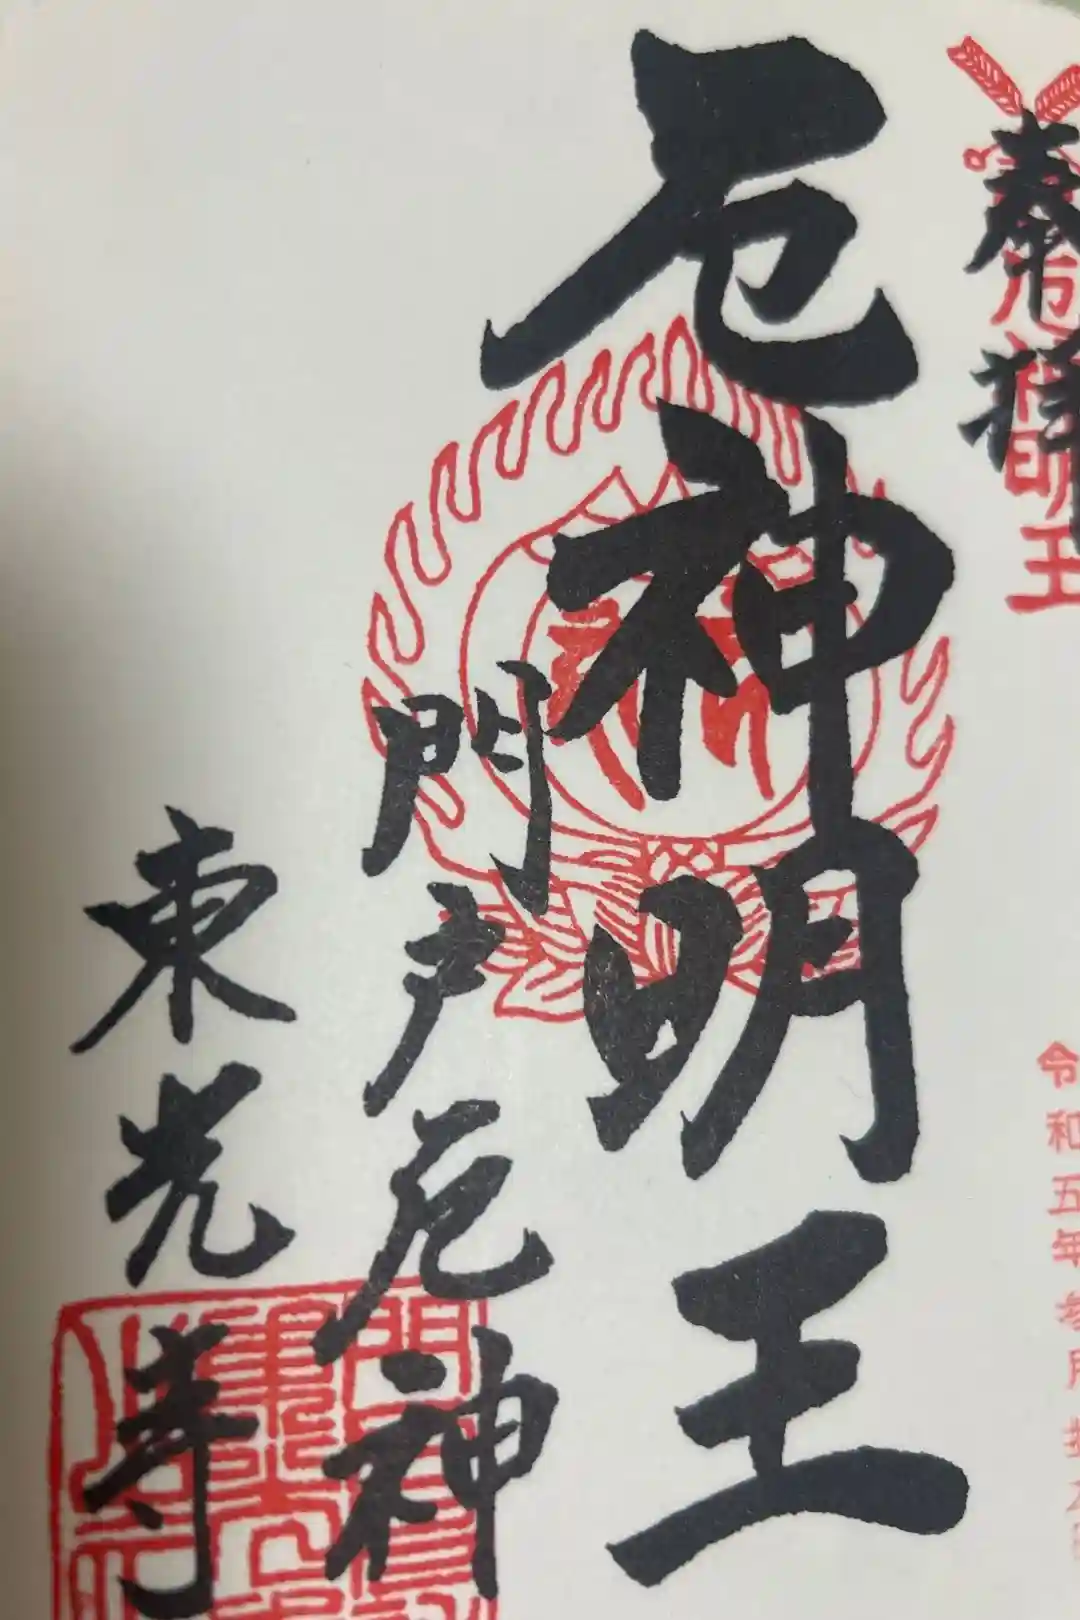 奉拝
厄神明王
令和五年
厄神明王
門戸厄神
東光寺